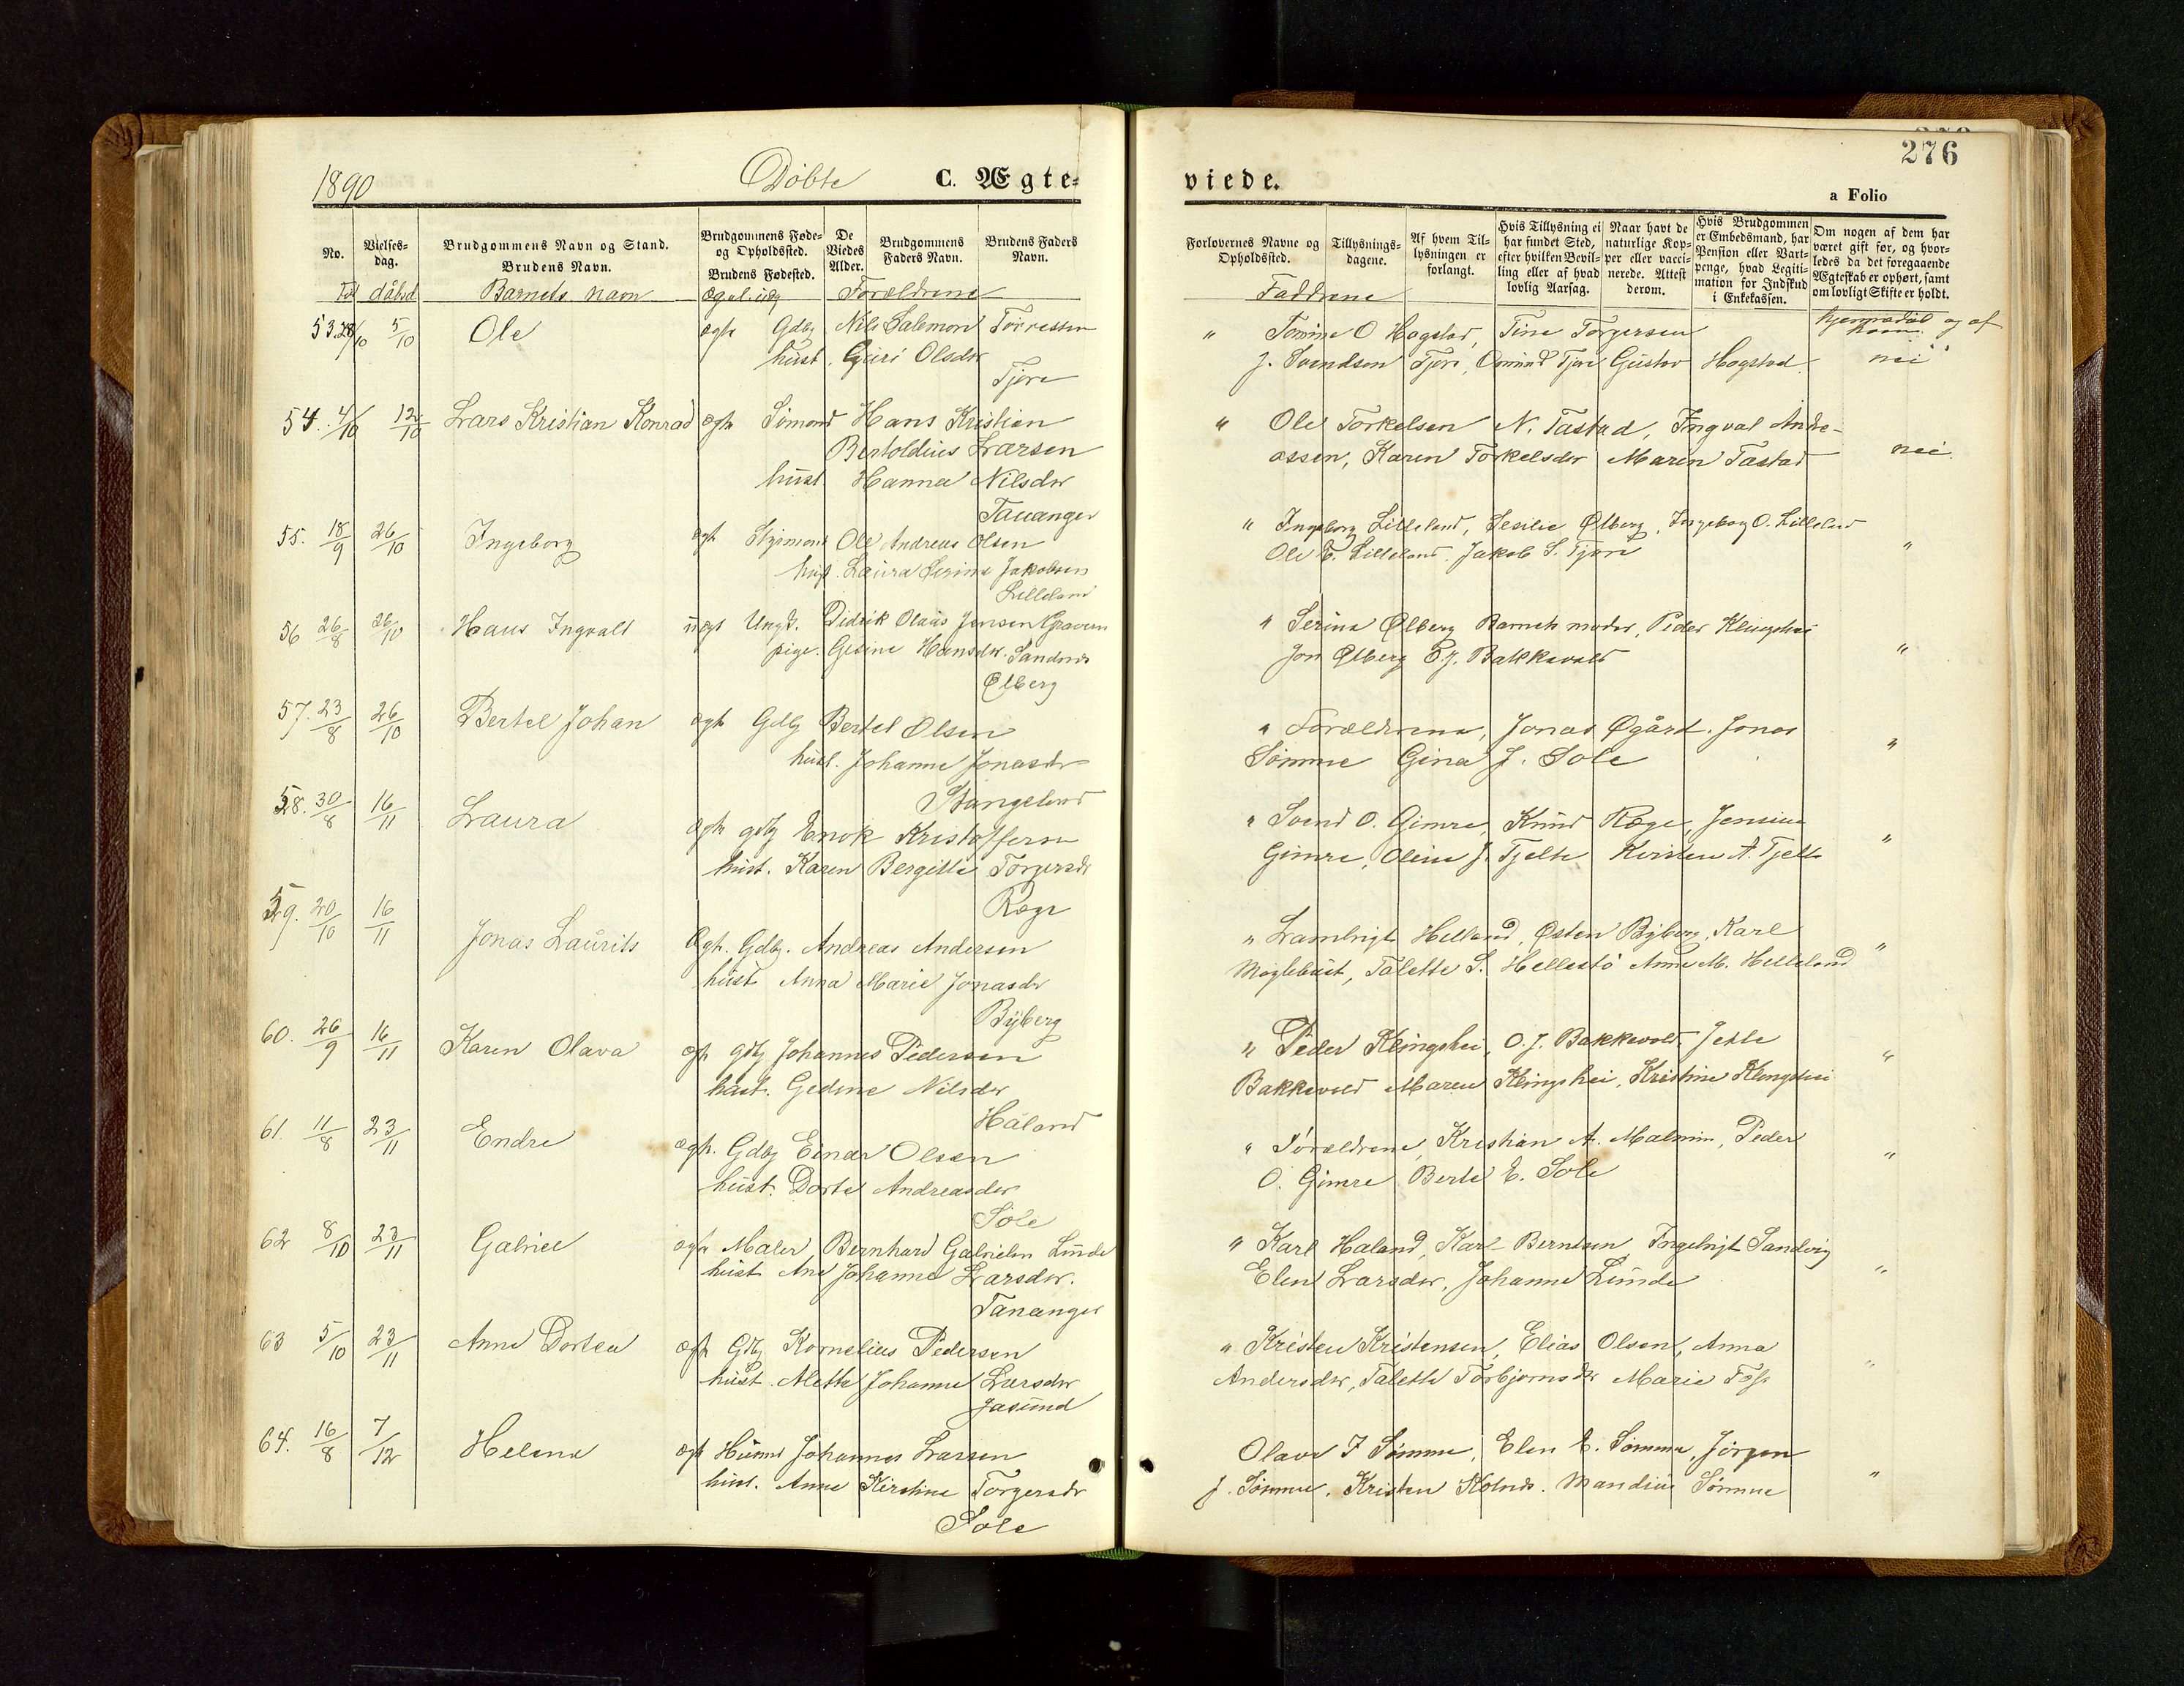 1890 Döbte C. Ægte-
No. Vielses-dag. Brudgommens Navn og Stand. Brudens Navn. Brudgommens Føde- og Opholdssted. Brudens Fødested. De Viedes Alder. Brudgommens Faders Navn. Brudens Faders Navn.
Fød dåbsd Barnets navn Forældrene
53. 5/10 Ole ægte Gdbr Nils Salemon Torressen
hust. Guri Olsdr
Tjora
54. 4/10 12/10 Lars Kristian Konrad ægte Sömand Hans Kristian
Bertoldius Larsen
hust Hanna Nilsdr
Tananger
55. 18/9 26/10 Ingeborg ægt Styrmand Ole Andreas Olsen
hust. Laura Serine Jakobsen
Lilleland
56 26/8 26/10 Hans Ingvald uægt Ungk. Didrik Olaus Jensen Gravern
pige. Gesine Hansdr. Sandnes
Ølberg
57. 23/8 26/10 Bertel Johan ægte Gdbr Bertel Olsen
hust. Johanne Jonasdr
Stangeland
58. 30/8 16/11 Laura ægte gdbr Enok Kristoffersen
hust. Karen Bergitte Torgersdr
Ræge
59. 20/10 16/11 Jonas Laurits Ægte. Gdbr. Andreas Andersen
hust Anna Marie Jonasdr
Byberg
60. 26/9 16/11 Karen Olava ægte gdbr Johannes Pedersen
hust. Gedine Nilsdr
Håland
61. 11/8 23/11 Endre ægte. Gdbr Einar Olsen
hust. Dorte Andreasdr
Sole
62 8/10 23/11 Gabriel ægte Maler Bernhard Gabrielsen Lunde
hust Ane Johanne Larsdr.
Tananger
63 5/10 23/11 Anne Dortea ægte Gdbr Kornelius Pedersen
hust. Mette Johanne Larsdr
Jasund
64. 16/8 7/12 Helene ægte Husmd Johannes Larsen
hust. Anne Kirstine Torgersdr
Sole
276
viede.
a Folio
Forlovernes Navne og Opholdssted. Tillysnings-dagene. Af hvem Til-lysningen er forlangt. Hvis Tillysning ei har fundet Sted, efter hvilken Bevil-ling eller af hvad lovlig Aarsag. Naar havt de naturlige Kop-per eller vacci-nerede. Attest derom. Hvis Brudgommen er Embedsmand, har Pension eller Vart-penge, hvad Legiti-mation for Indskud i Enkekassen. Om nogen af dem har været gift før, og hvor-ledes da det foregaaende Ægteskab er ophørt, samt om lovligt Skifte er holdt.
Faddrene hjemmedöbt og af
" Tomine O Hogstad, Tine Torgersen
J. Svendsen Tjora, Omund Tjora Gustav Hogstad. nei
" Ole Torkelsen N. Tastad, Ingval Andre-
assen, Karen Torkelsdr Maren Tastad nei.
" Ingeborg Lilleland, Sesilie Ølberg, Ingeborg O. Lilleland
Ole E. Lilleland. Jakob S. Tjora "
" Serina Ølberg Barnets moder, Peder Klingshei
Jon Ølberg O. J. Bakkevold "
" Forældrene, Jonas Øgård. Jonas
Sömme Gina J. Sole "
" Svend O. Gimre, Knud Ræge, Jensine
Gimre, Oline J. Tjelta Kirsten A. Tjelta "
" Lambrigt Helland, Østen Byberg, Karl
Moglebust, Talette S. Hellestö Anne M. Helleland "
" Peder Klingshei, O. J. Bakkevold Jette
Bakkevold Maren Klingshei, Kristine Klingshei "
" Forældrene, Kristian A. Malmin, Peder
O. Gimre Berte E. Sole "
" Karl Haland, Karl Berntsen, Ingebrigt Sandvig
Elen Larsdr, Johanne Lunde "
" Kristen Kristensen, Elias Olsen, Anna
Andersdr, Talette Torbjornsdr Marie Foss "
Olava J Sömme, Elen E. Sömme, Jörgen
J. Sömme. Kristen Kolnes. Mandius Sömme "